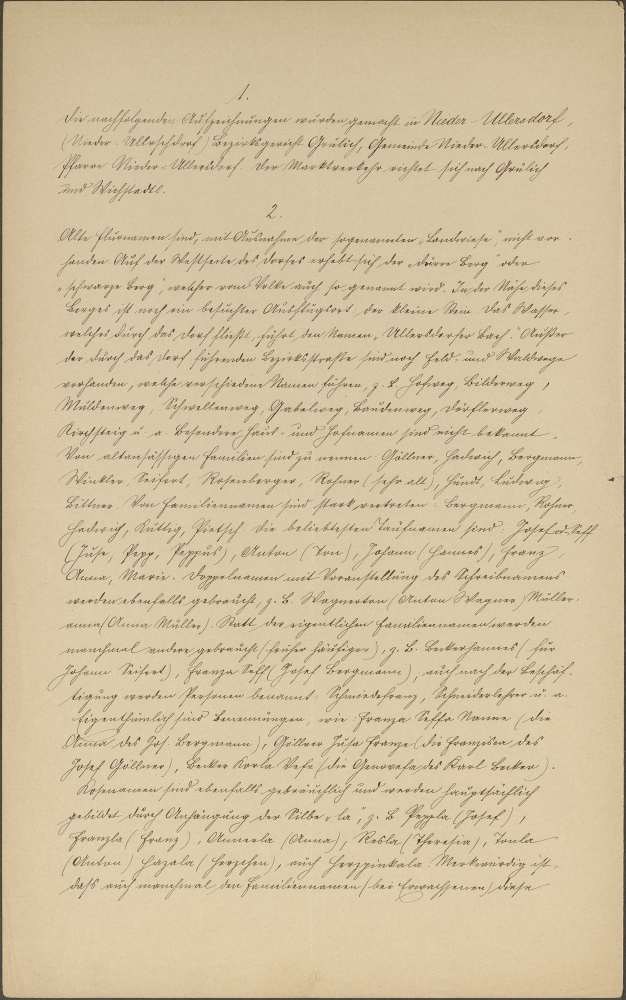 1.
Die nachfolgenden Aufzeichnungen wurden gemacht in Nieder-Ullersdorf,
(Nieder-Ullrschdorf) Bezirksgericht Grulich, Gemeinde Nieder-Ullersdorf,
Pfarre Nieder-Ullersdorf. Der Marktverkehr richtet sich nach Grulich
und Wichstadtl.
2.
Alte Flurnamen sind, mit Ausnahme der sogenannten „Landwiese", nicht vor-
handen. Auf der Westseite des Dorfes erhebt sich der „dürre Berg" oder
„schwarze Berg", welcher vom Volke auch so genannt wird. In der Nähe dieses
Berges ist noch ein besuchter Ausflugsort, der kleine Stein. Das Wasser,
welches durch das Dorf fließt, führt den Namen „Ullersdorfer Bach". Außer
der durch das Dorf führenden Bezirksstraße sind noch Feld- und Waldwege
vorhanden, welche verschiedene Namen führen, z. B. Hofweg, Bilderweg,
Muldenweg, Schwellenweg, Gabelweg, Baudenweg, Dörflerweg,
Kirchsteig u. a. Besondere Haus- und Hofnamen sind nicht bekannt.
Von altansässigen Familien sind zu nennen: Göllner, Hadwich, Bergmann,
Winkler, Seifert, Rosenberger, Rohner (sehr alt), Hündt, Ludwig,
Bittner. Von Familiennamen sind stark vertreten: Bergmann, Rohner,
Hadwich, Küttig, Pietsch. Die beliebtesten Taufnamen sind: Josef od. Seff
(Juse, Pepp, Peppus), Anton (Ton), Johann (Hannes), Franz,
Anna, Marie. Doppelnamen mit Voranstellung des Schreibnamens
werden ebenfalls gebraucht, z. B. Wagnerton (Anton Wagner) Müller-
anna (Anna Müller). Statt der eigentlichen Familiennamen werden
manchmal andere gebraucht (früher häufiger), z. B. Beckerhannes (für
Johann Seifert), Franza Seff (Josef Bergmann), auch nach der Beschäf-
tigung werden Personen benannt: Schmiedefranz, Schneiderlehrer u. a.
Eigenthümlich sind Benennungen, wie Franza Seffa Nanne (die
Anna des Jos. Bergmann), Göllner Jusa Franze (die Franziska des
Josef Göllner), Becker Korla Vefe (die Genovefa des Karl Becker).
Kosenamen sind ebenfalls gebräuchlich und werden hauptsächlich
gebildet durch Anhängung der Silbe „la", z. B. Peppla (Josef),
Franzla (Franz), Annerla (Anna), Resla (Theresia), Tonla
(Anton) Hazala (Herzchen), auch Herzpinkala. Merkwürdig ist,
daß auch manchmal den Familiennamen (bei Erwachsenen) diese